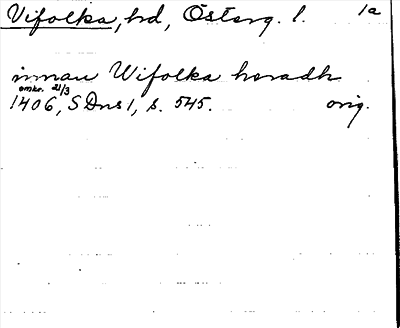 Vifolka, hd, Österg. l. 1a
innan Wifolka hæradh
omkr. 21/3
1406, SDns 1, s. 545. orig.